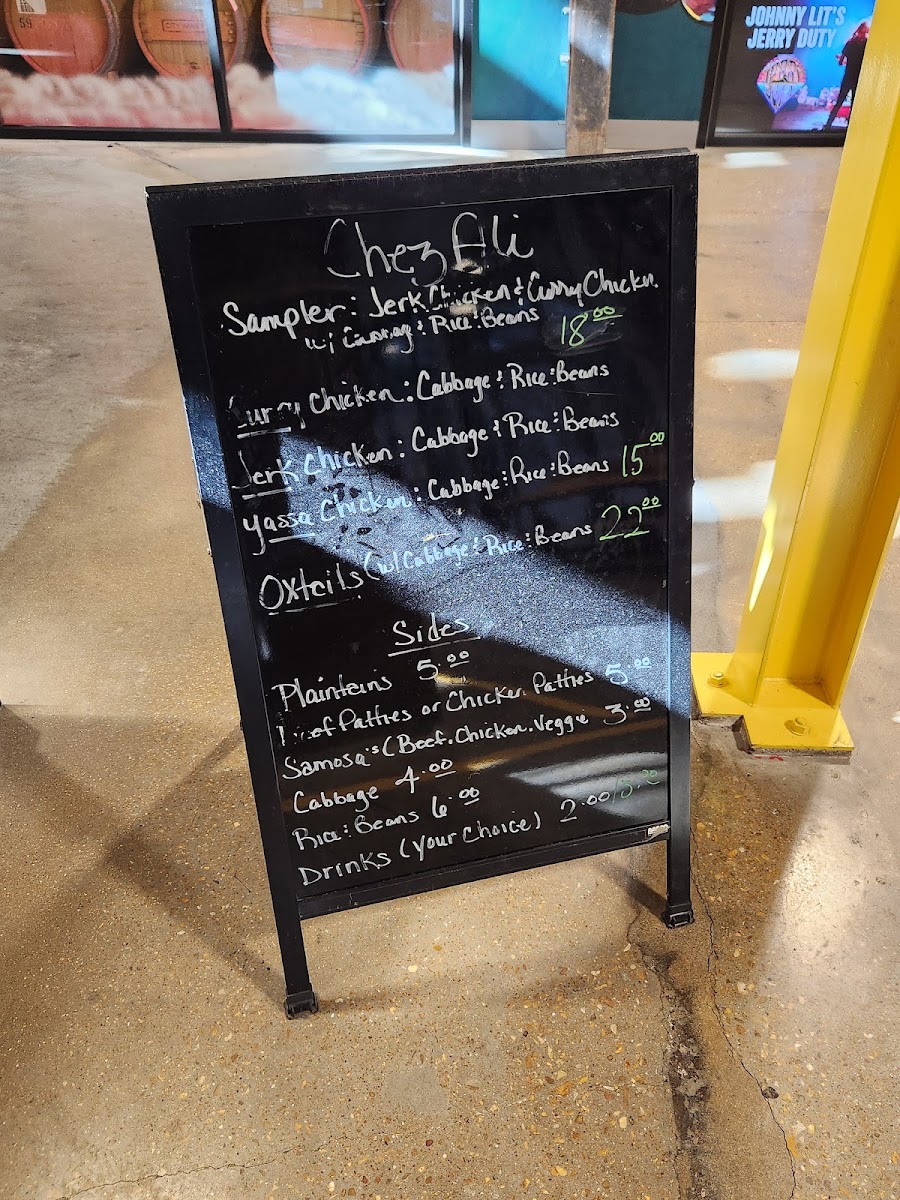 59
JOHNNY LIT'S
JERRY DUTY
Chez Ali
Sampler: Jerk Chicken & Curry Chickn.
w/ & Rice & Beans 18.00
Curry Chicken: Cabbage & Rice & Beans
Jerk Chicken: Cabbage & Rice & Beans
Yassa Chicken: Cabbage & Rice & Beans 15.00
Oxtails (w/ Cabbage & Rice & Beans 22.00
Sides
Plaintains 5.00
Beef Patties or Chicken Patties 5.00
Samosa's (Beef, Chicken, Veggie 3.00
Cabbage 4.00
Rice & Beans 6.00
Drinks (Your Choice) 2.00/